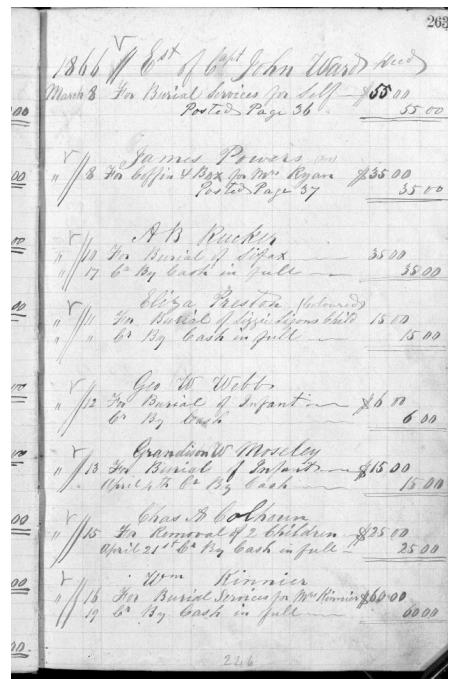 263
1866 Est of Capt John Ward Decd
March 8 For Burial Services for Self $55 00
Posted Page 36 55 00
James Powers
" 8 For Coffin & Box for Mrs Ryan $35 00
Posted Page 37 35 00
A B Rucker
" 10 For Burial of Sifax 35 00
" 17 Cr By Cash in full 35 00
Eliza Preston (Coloured)
" 11 For Burial of Lizzie Lyons Child 15 00
" " Cr By Cash in full 15 00
Geo W Webb
" 12 For Burial of Infant $6 00
Cr By Cash 6 00
Grandison W Moseley
" 13 For Burial of Infant $15 00
April 4th Cr By Cash 15 00
Chas A Colhoun
" 15 For Removal of 2 Children $25 00
April 21st Cr By Cash in full 25 00
Wm Kinnier
" 16 For Burial Services for Mrs Kinnier $60 00
" 19 Cr By Cash in full 60 00
246